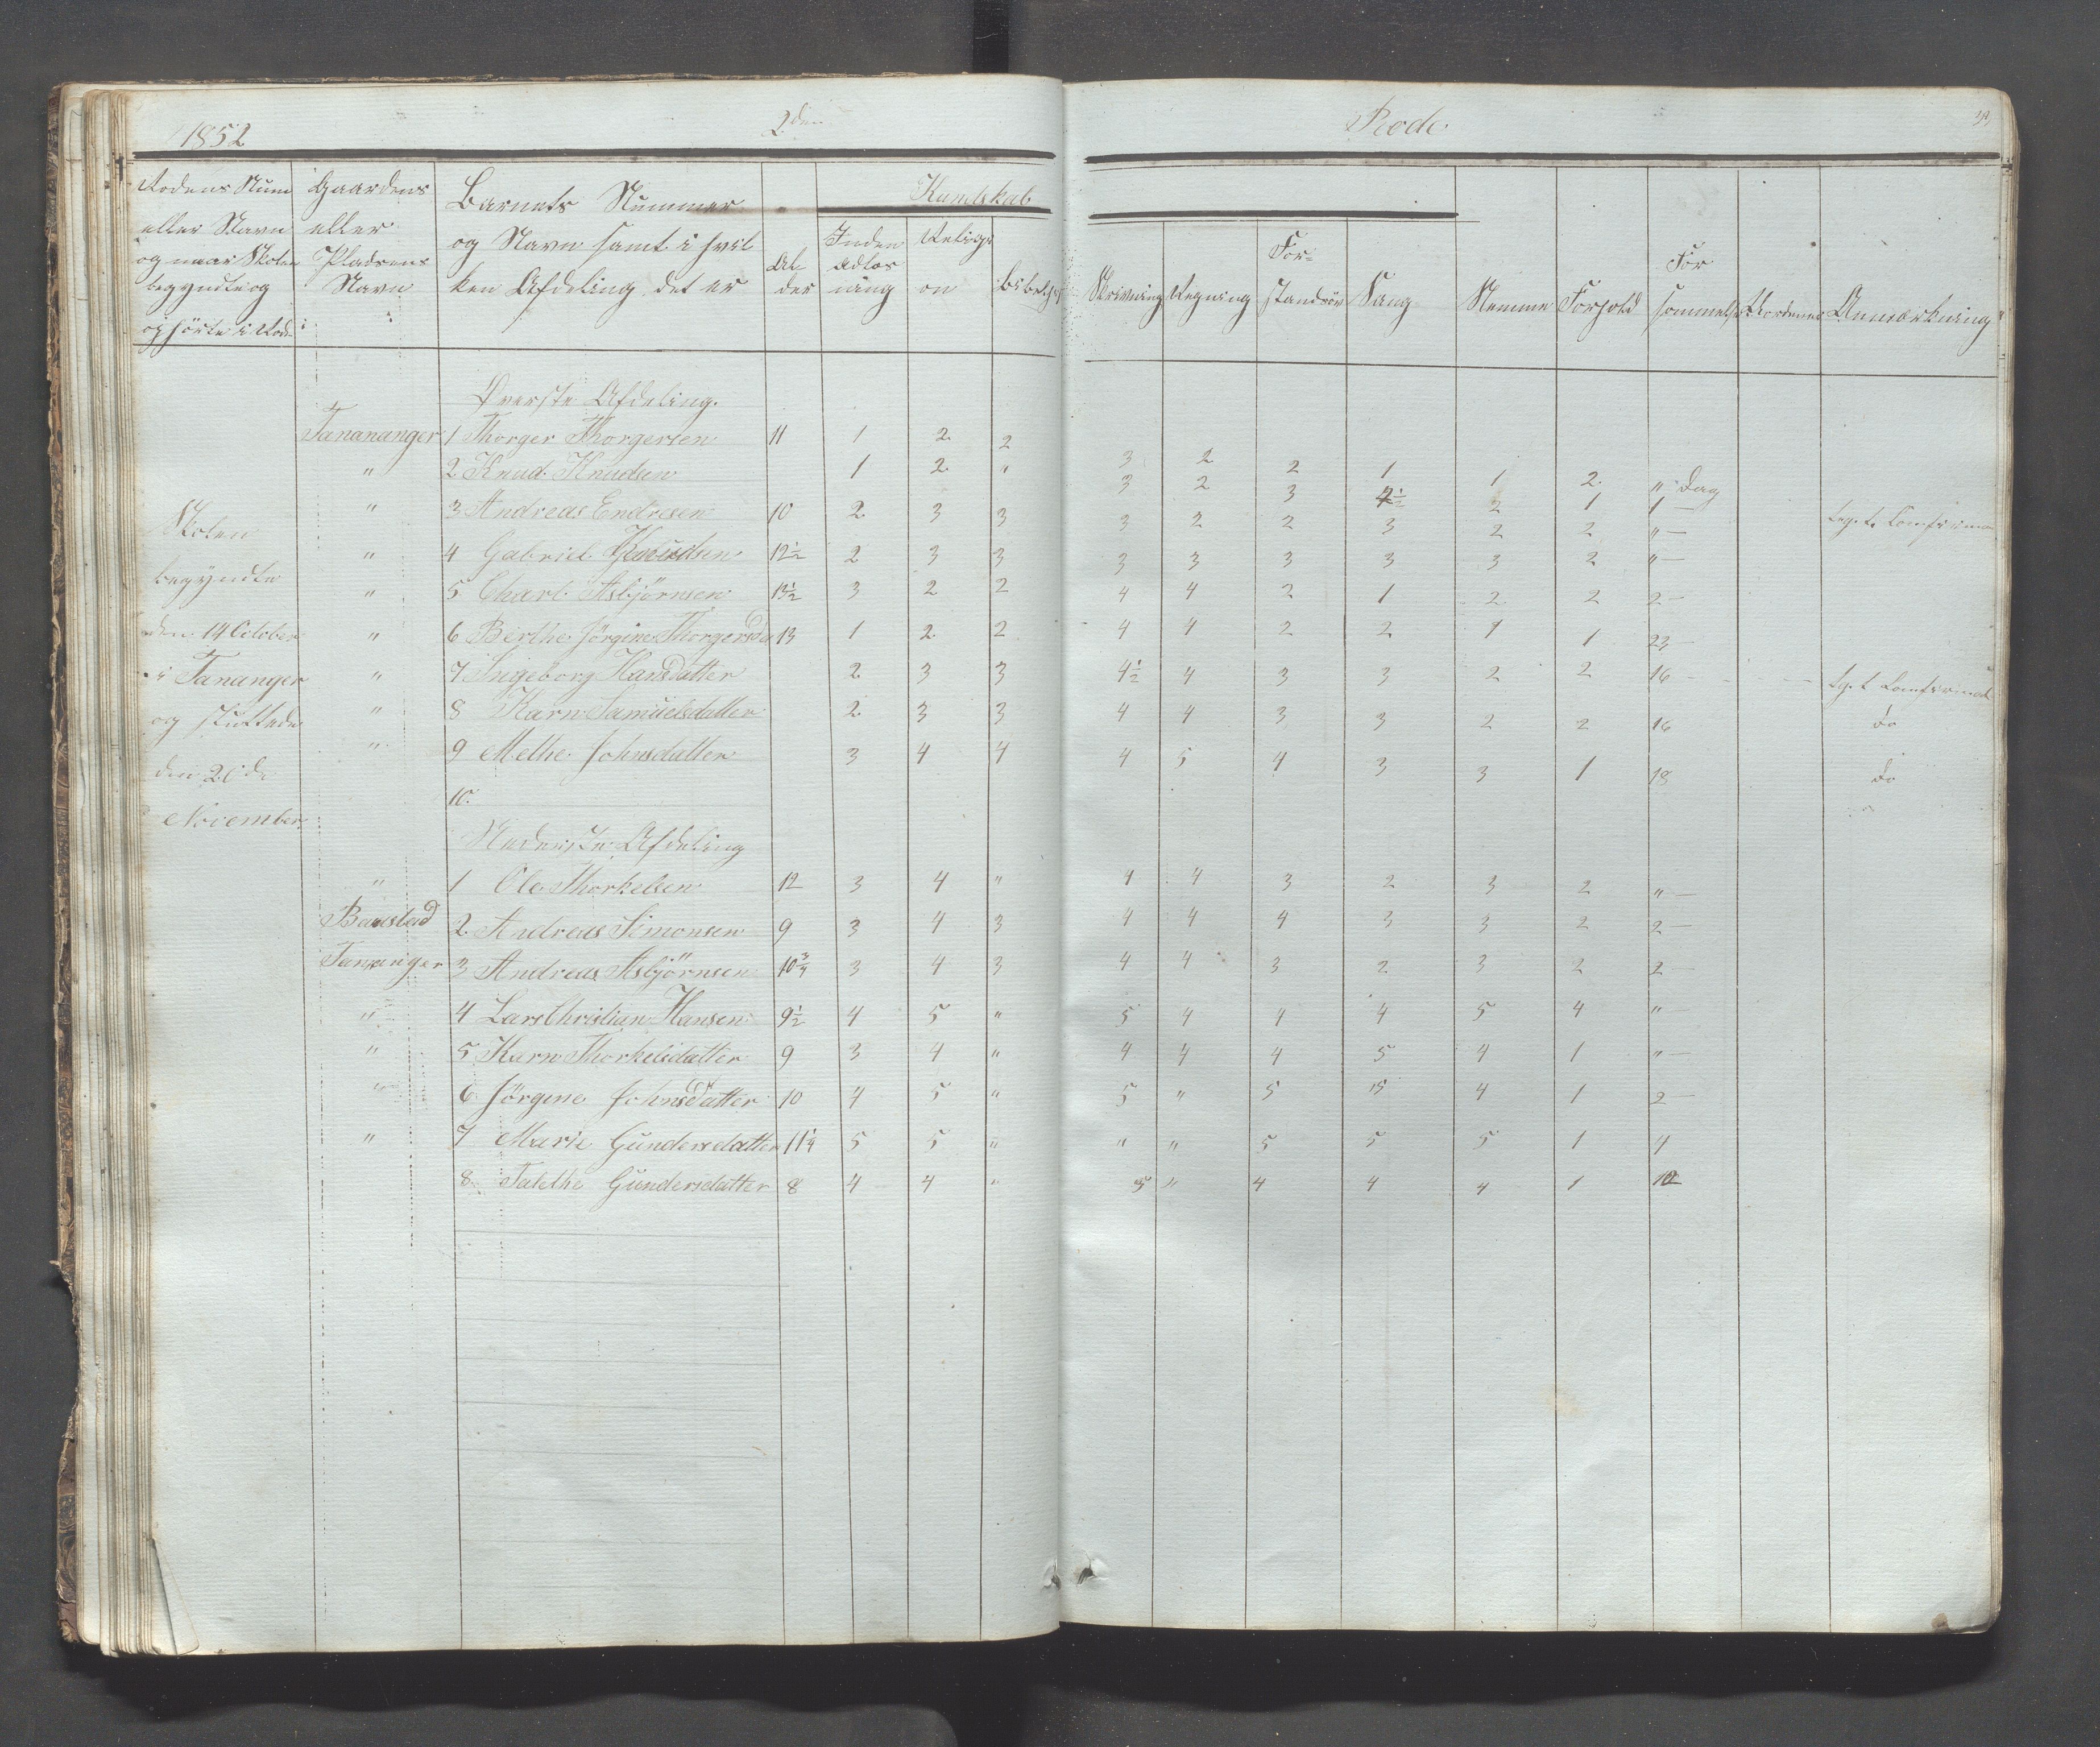 1852 2den Rode
Rodens Num Gaardens Barnets Nummer Kundskab
eller Navn eller og Navn samt i hvil Inden Religi For= For
og naar Skolen Pladsens ken Afdeling det er Al adlæs on Skrivning Regning stands Sang Nemme Forhold sommelse Anmærkning
begyndte og Navn der ning
ophörte i Rode
Øverste Afdeling.
Tanananger 1 Thorger Thorgersen 11 1 2 2 3 2 2 1 1 2 " Dag
" 2 Knud Knudsen 1 2 " 3 2 3 1 1
" 3 Andreas Endresen 10 2 3 3 3 2 2 3 2 2 " —
Skolen
" 4 Gabriel Knudsen 12½ 2 3 3 3 3 3 3 3 2 " —
begyndte
" 5 Charl Asbjörnsen 13½ 3 2 2 4 4 2 1 2 2 2 —
den 14 October " 6 Berthe Jörgine Thorgersd 13 1 2 2 4 4 2 2 1 1 23 —
i Tananger " 7 Ingeborg Hansdatter 2 3 3 4½ 4 3 3 2 2 16 —
og sluttede " 8 Karn Samuelsdatter 2 3 3 4 4 3 3 2 2 16 do
" 9 Melhe Johnsdatter 3 4 4 4 5 4 3 3 1 18 do
den
10.
November
Nederste Afdeling
" 1 Ole Thorkelsen 12 3 4 " 4 4 3 2 3 2 " —
2 Andreas Simonsen 9 3 4 3 4 4 4 3 3 2 2 —
Tananger 3 Andreas Asbjörnsen 10¾ 3 4 3 4 4 3 2 3 2 2 —
" 4 Lars Christian Hansen 9½ 4 5 " 5 4 4 4 5 4 " —
" 5 Karn Thorkelsdatter 9 3 4 " 4 4 4 5 4 1 " —
" 6 Jörgine Johnsdatter 10 4 5 " 5 " 5 5 4 1 2 —
" 7 Marie Gundersdatter 11¼ 5 5 " " " 5 5 5 1 4
8 Talethe Gundersdatter 8 4 4 " 5 " 4 4 4 1 12